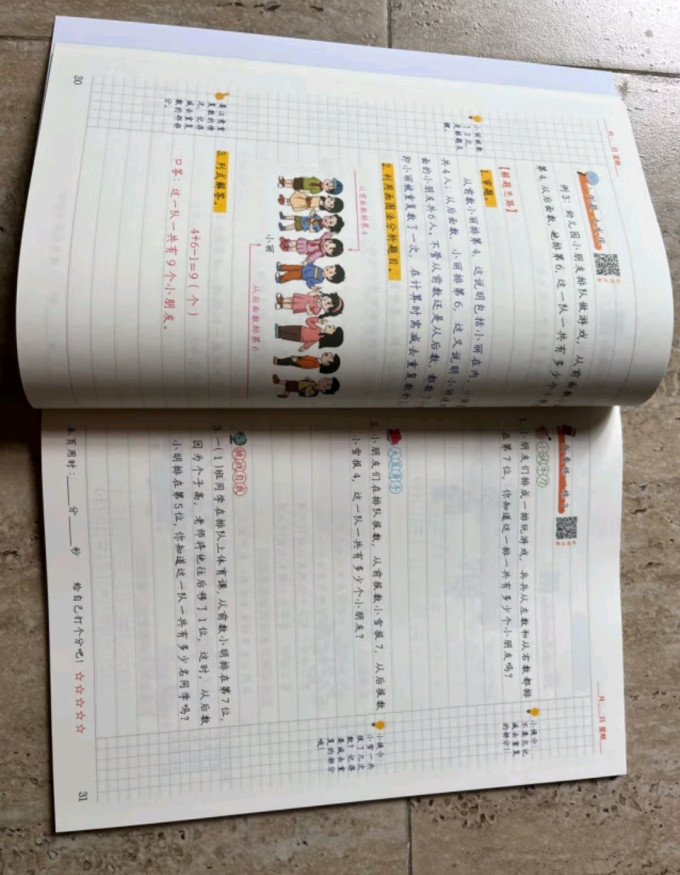 月 日 星期
例3:幼儿园小朋友排队做游戏,从前面数
第4,从后面数,她排第6,这一队一共有多少个
【解题思路】
1.审题。
从前数小丽排第4,这说明包括小丽在内,
共4人;从后面数,小丽排第6,这又说明小丽
面的小朋友共6人。不管从前数还是从后数,都数了
即小丽被重复数了一次,在计算时需减去重复数的
2.利用画图法分析题目。
从前面数排第4
小丽
从后面数排第6
3.列式解答。
4+6-1=9(个)
口答:这一队一共有9个小朋友。
要注意重
复数的情
况,记得
减去重复
数的部分
分。
30
月 日 星期
1.小朋友们排成一排玩游戏,兵兵从左数和从右数都排
在第7位,你知道这一排一共有多少个小朋友吗?
小提示:
不要忘记
减去重复
的部分!
2.小朋友们在排队报数,从前报数小雪报7,从后报数
小雪报4,这一队一共有多少个小朋友?
小提示:
小雪一共
报了几次
数?记得
要减去重
复的部分
哦!
3.一(1)班同学在排队上体育课,从前数小明排在第7位,
因为个子高,老师将他往后移了1位,这时,从后数
小明排在第5位,你知道这一队一共有多少名同学吗?
本页用时:____分____秒 给自己打个分吧!☆☆☆☆☆
31